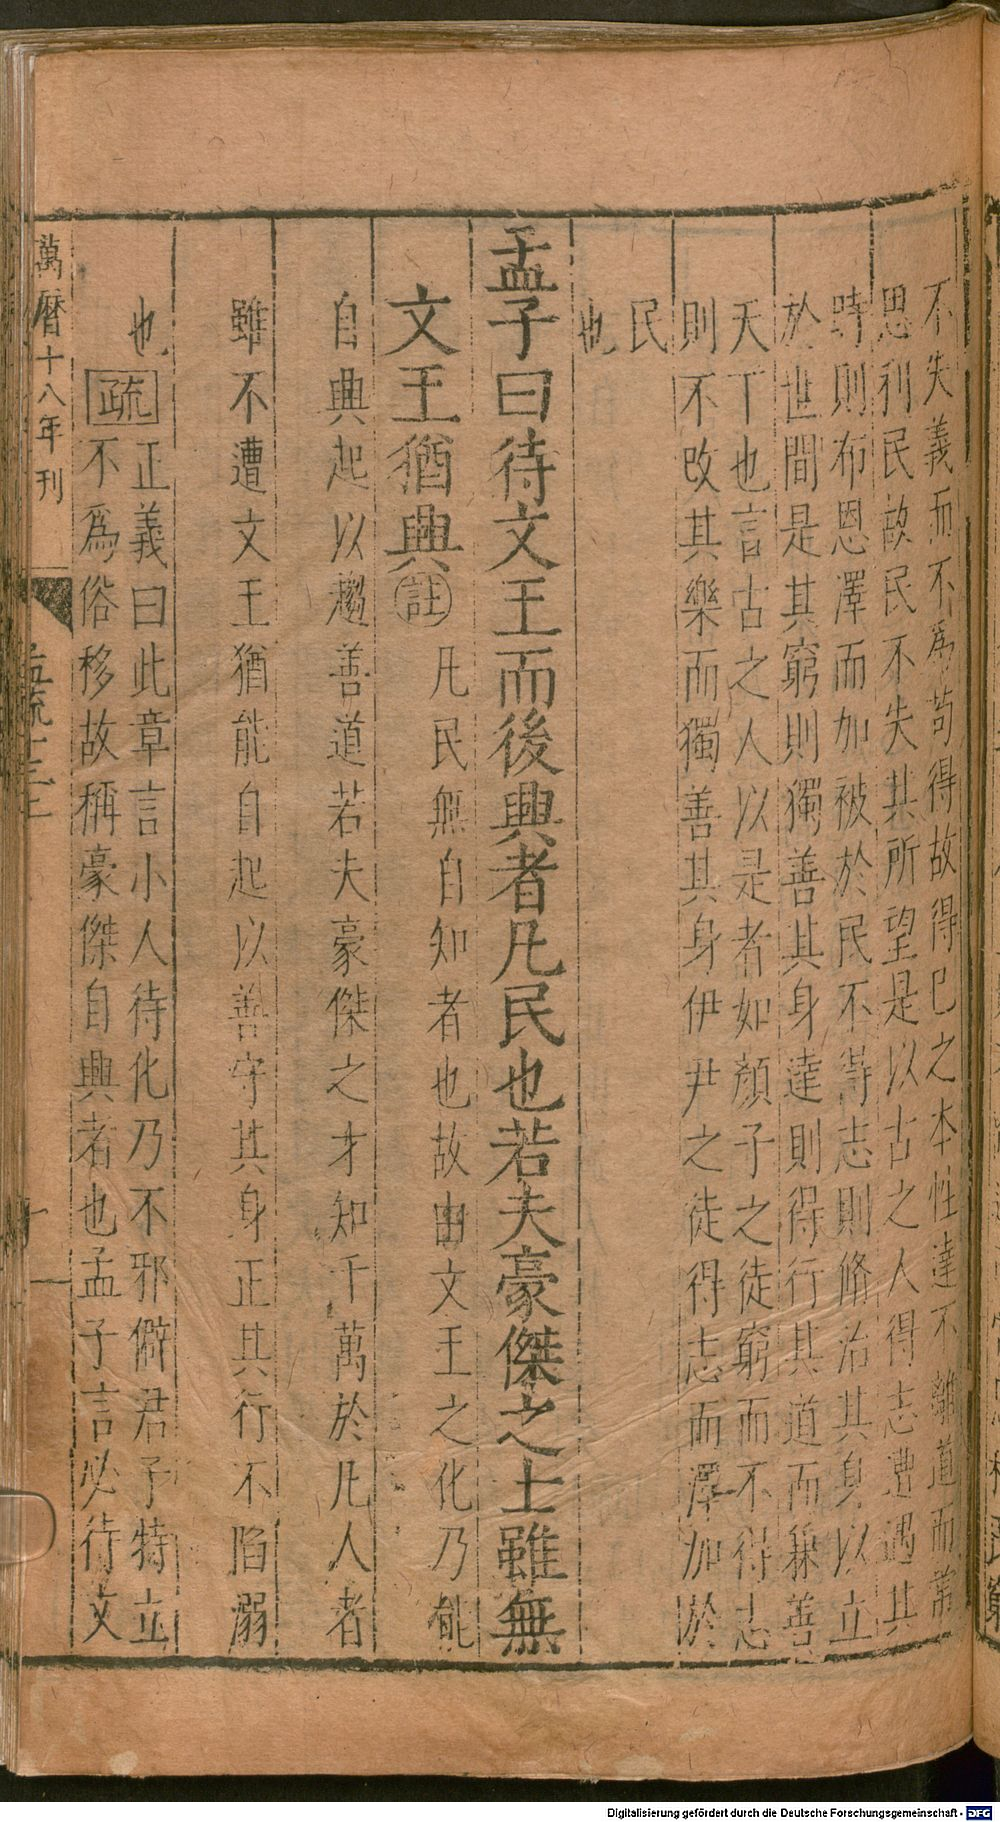 不失義而不爲苟得故得已之本性達不離道而常
思利民故民不失其所望是以古之人得志遭遇其
時則布恩澤而加被於民不得志則脩治其身以立
於世間是其窮則獨善其身達則得行其道而兼善
天下也言古之人以是者如顏子之徒窮而不得志
則不改其樂而獨善其身伊尹之徒得志而澤加於
民
也
孟子曰待文王而後興者凡民也若夫豪傑之士雖無
文王猶興註凡民無自知者也故由文王之化乃能
自興起以趨善道若夫豪傑之才知千萬於凡人者
雖不遭文王猶能自起以善守其身正其行不陷溺
也疏正義曰此章言小人待化乃不邪僻君子特立
不爲俗移故稱豪傑自興者也孟子言必待文
萬曆十八年刊
孟疏十三上
Digitalisierung gefördert durch die Deutsche Forschungsgemeinschaft - DFG